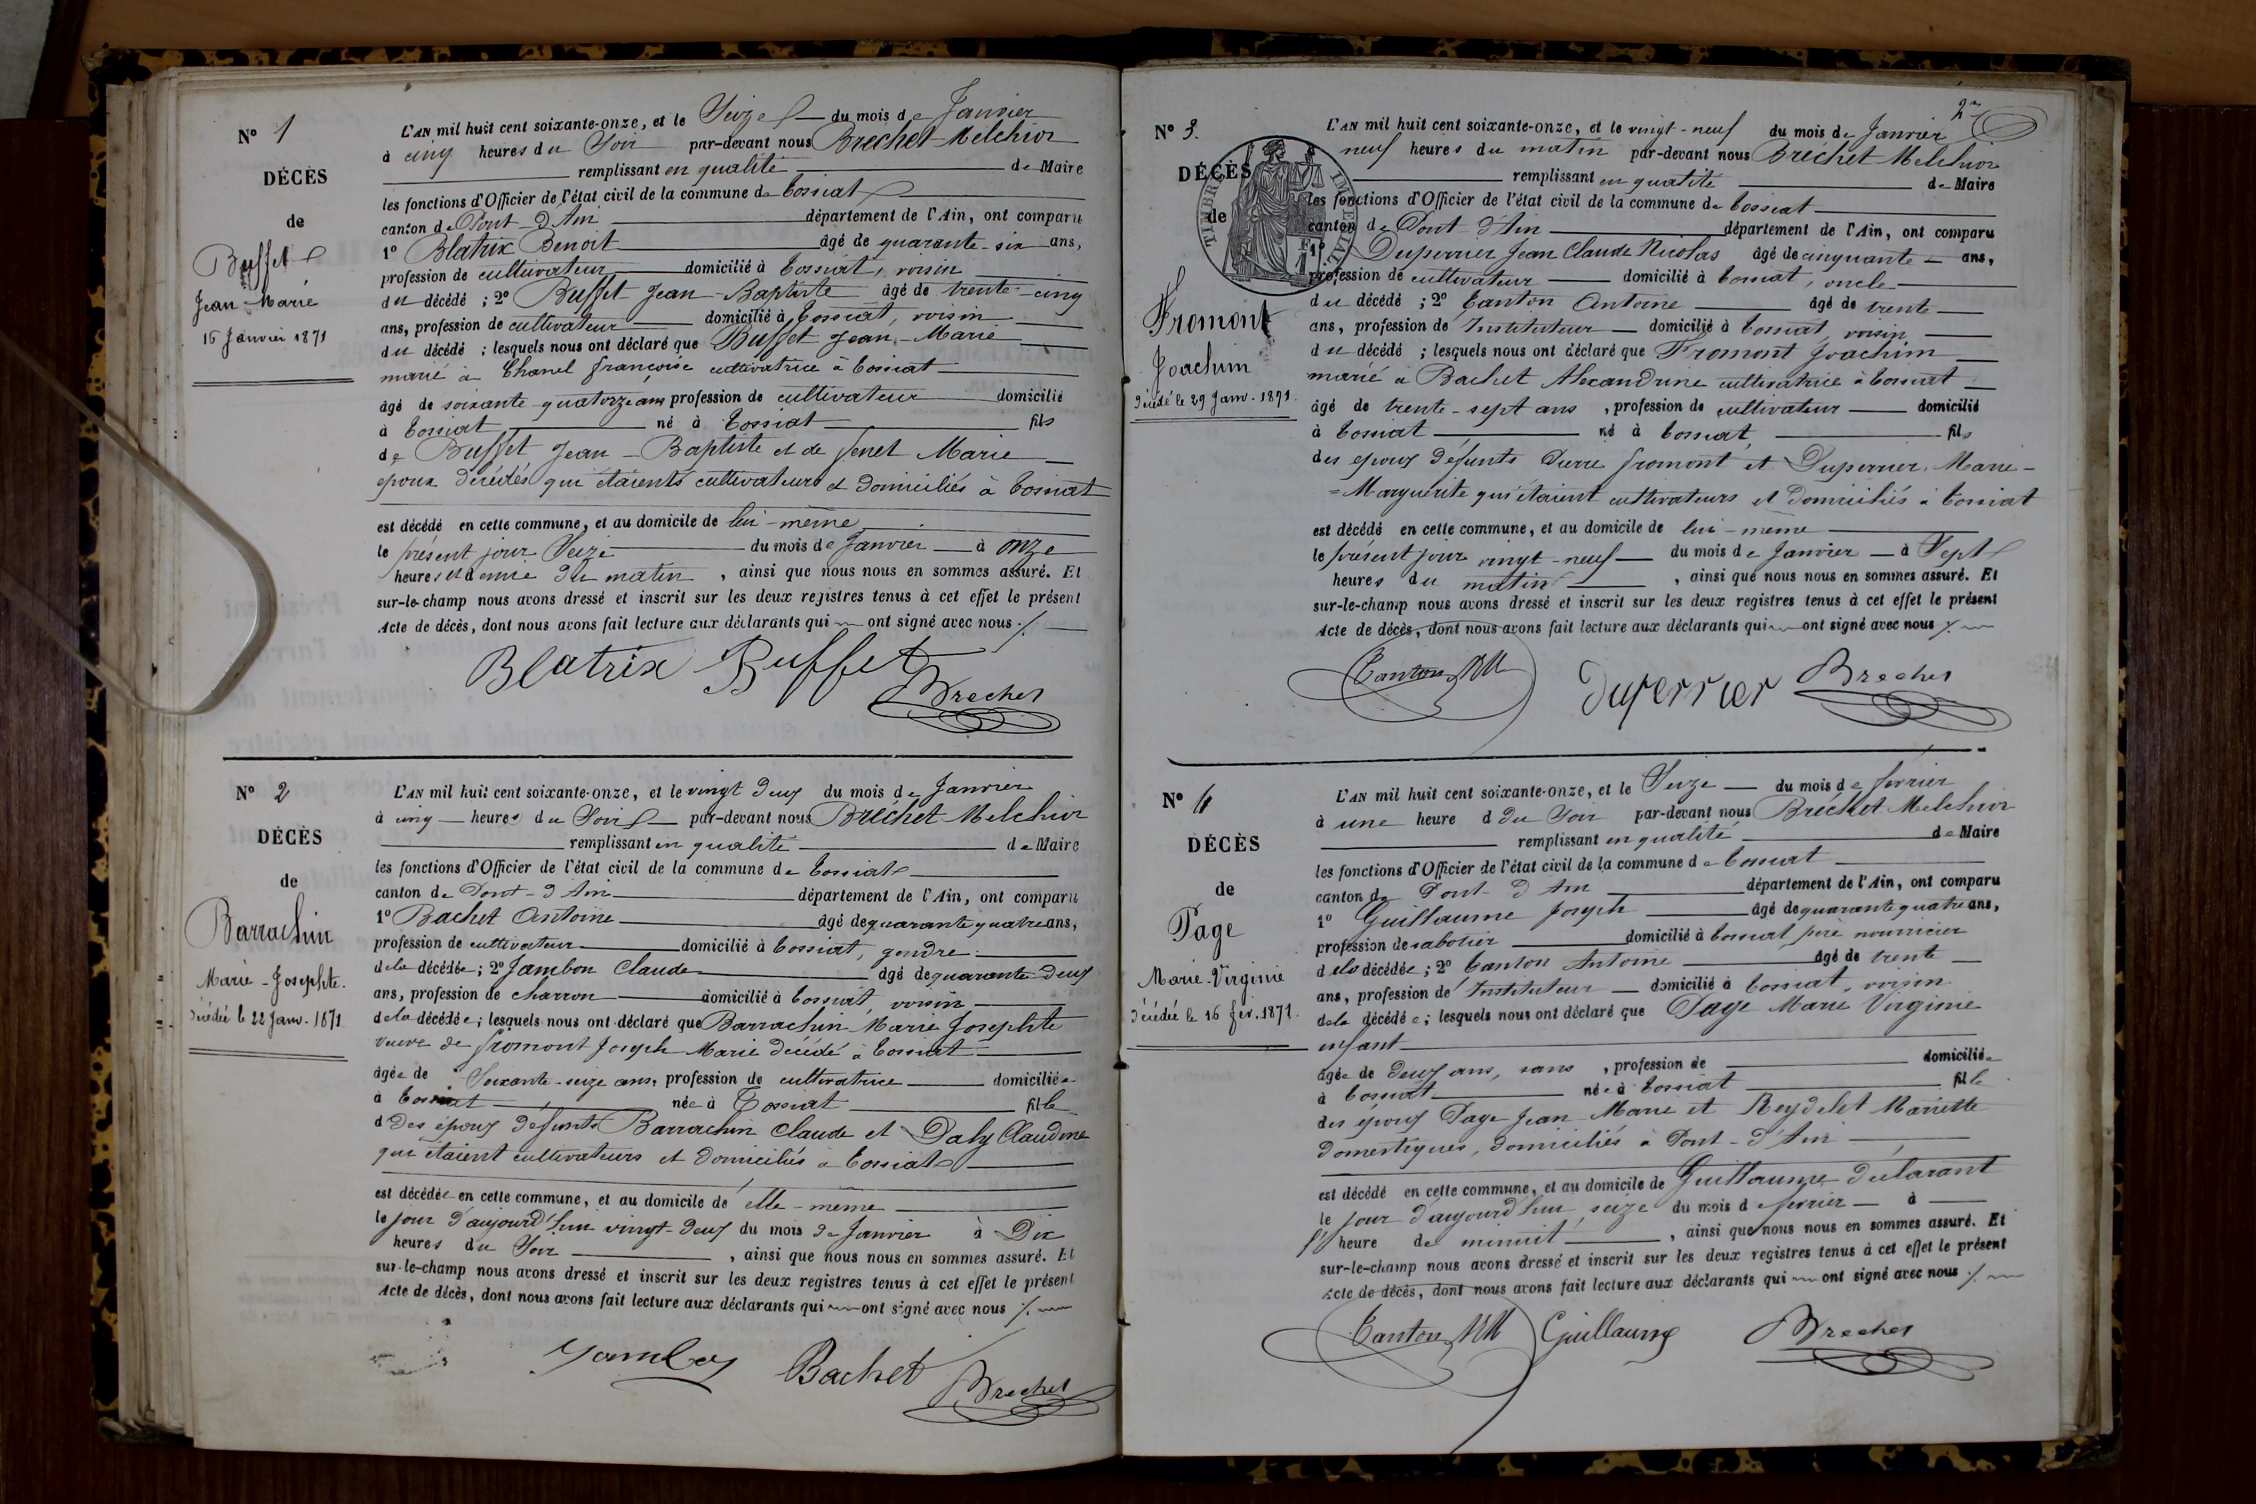 N° 1
DÉCÈS
de
Buffet
Jean-Marie
16 Janvier 1871
L'AN mil huit cent soixante-onze, et le Seize du mois de Janvier
à cinq heures du Soir par-devant nous Bréchet Melchior
remplissant en qualité de Maire
les fonctions d'Officier de l'état civil de la commune de Tossiat
canton de Pont-d'Ain département de l'Ain, ont comparu
1° Blatrix Benoit âgé de quarante-six ans,
profession de cultivateur domicilié à Tossiat, voisin
du décédé ; 2° Buffet Jean-Baptiste âgé de trente-cinq
ans, profession de cultivateur domicilié à Tossiat, voisin
du décédé ; lesquels nous ont déclaré que Buffet Jean-Marie
marié à Chanel françoise cultivatrice à Tossiat
âgé de soixante quatorze ans profession de cultivateur domicilié
à Tossiat né à Tossiat fils
de Buffet Jean-Baptiste et de Marie
époux décédés qui étaients cultivateurs et domiciliés à Tossiat
est décédé en cette commune, et au domicile de lui-même
le présent jour Seize du mois de Janvier à onze
heures et demie du matin, ainsi que nous nous en sommes assuré. Et
sur-le-champ nous avons dressé et inscrit sur les deux registres tenus à cet effet le présent
Acte de décès, dont nous avons fait lecture aux déclarants qui ont signé avec nous ./.
Blatrix Buffet
Brechet
N° 2
DÉCÈS
de
Barrachin
Marie-Josephte.
décédée le 22 Janv. 1871
L'AN mil huit cent soixante-onze, et le vingt deux du mois de Janvier
à cinq heures du Soir par-devant nous Bréchet Melchior
remplissant en qualité de Maire
les fonctions d'Officier de l'état civil de la commune de Tossiat
canton de Pont-d'Ain département de l'Ain, ont comparu
1° Bachet Antoine âgé de quarante quatre ans,
profession de cultivateur domicilié à Tossiat, gendre
de la décédée ; 2° Jambon Claude âgé de quarante deux
ans, profession de charron domicilié à Tossiat, voisin
de la décédée ; lesquels nous ont déclaré que Barrachin Marie Josephte
veuve de fromont Joseph Marie décédé à Tossiat
âgée de Soixante-seize ans, profession de cultivatrice domiciliée
à Tossiat née à Tossiat fille
d des époux défunts Barrachin Claude et Daly Claudine
qui étaient cultivateurs et domiciliés à Tossiat
est décédée en cette commune, et au domicile de elle-même
le jour d'aujourd'hui vingt-deux du mois de Janvier à Dix
heures du Soir, ainsi que nous nous en sommes assuré. Et
sur-le-champ nous avons dressé et inscrit sur les deux registres tenus à cet effet le présent
Acte de décès, dont nous avons fait lecture aux déclarants qui ont signé avec nous ./.
Bachet
Brechet
2
N° 3.
DÉCÈS
de
Fromont
Joachim
décédé le 29 Janv. 1871.
TIMBRE IMPÉRIAL
L'AN mil huit cent soixante-onze, et le vingt-neuf du mois de Janvier
neuf heures du matin par-devant nous Bréchet Melchior
remplissant en qualité de Maire
les fonctions d'Officier de l'état civil de la commune de Tossiat
canton de Pont d'Ain département de l'Ain, ont comparu
1° Duperrier Jean Claude Nicolas âgé de cinquante ans,
profession de cultivateur domicilié à Tossiat, oncle
du décédé ; 2° Tanton Antoine âgé de trente
ans, profession de Instituteur domicilié à Tossiat, voisin
du décédé ; lesquels nous ont déclaré que Fromont Joachim
marié à Bachet Alexandrine cultivatrice à Tossiat
âgé de trente-sept ans, profession de cultivateur domicilié
à Tossiat né à Tossiat, fils
des époux défunts Pierre fromont et Duperrier Marie-
=Marguerite qui étaient cultivateurs et domiciliés à Tossiat
est décédé en cette commune, et au domicile de lui-même
le présent jour vingt-neuf du mois de Janvier à Sept
heures du matin, ainsi que nous nous en sommes assuré. Et
sur-le-champ nous avons dressé et inscrit sur les deux registres tenus à cet effet le présent
Acte de décès, dont nous avons fait lecture aux déclarants qui ont signé avec nous ./.
Tanton Duperrier Brechet
N° 4
DÉCÈS
de
Page
Marie-Virginie
décédée le 16 fév. 1871.
L'AN mil huit cent soixante-onze, et le Seize du mois de février
à une heure d du Soir par-devant nous Bréchet Melchior
remplissant en qualité de Maire
les fonctions d'Officier de l'état civil de la commune de Tossiat
canton de Pont d'Ain département de l'Ain, ont comparu
1° Guillaume Joseph âgé de quarante quatre ans,
profession de sabotier domicilié à Tossiat, père nourricier
de la décédée ; 2° Tanton Antoine âgé de trente
ans, profession de Instituteur domicilié à Tossiat, voisin
de la décédée ; lesquels nous ont déclaré que Page Marie Virginie
enfant
âgée de deux ans, sans, profession de domiciliée
à Tossiat née à Tossiat fille
des époux Page Jean-Marie et Reydelet Mariette
domestiques, domiciliés à Pont-d'Ain
est décédé en cette commune, et au domicile de Guillaume déclarant
le jour d'aujourd'hui seize du mois d février à
l' heure de minuit, ainsi que nous nous en sommes assuré. Et
sur-le-champ nous avons dressé et inscrit sur les deux registres tenus à cet effet le présent
Acte de décès, dont nous avons fait lecture aux déclarants qui ont signé avec nous ./.
Tanton Guillaume Brechet